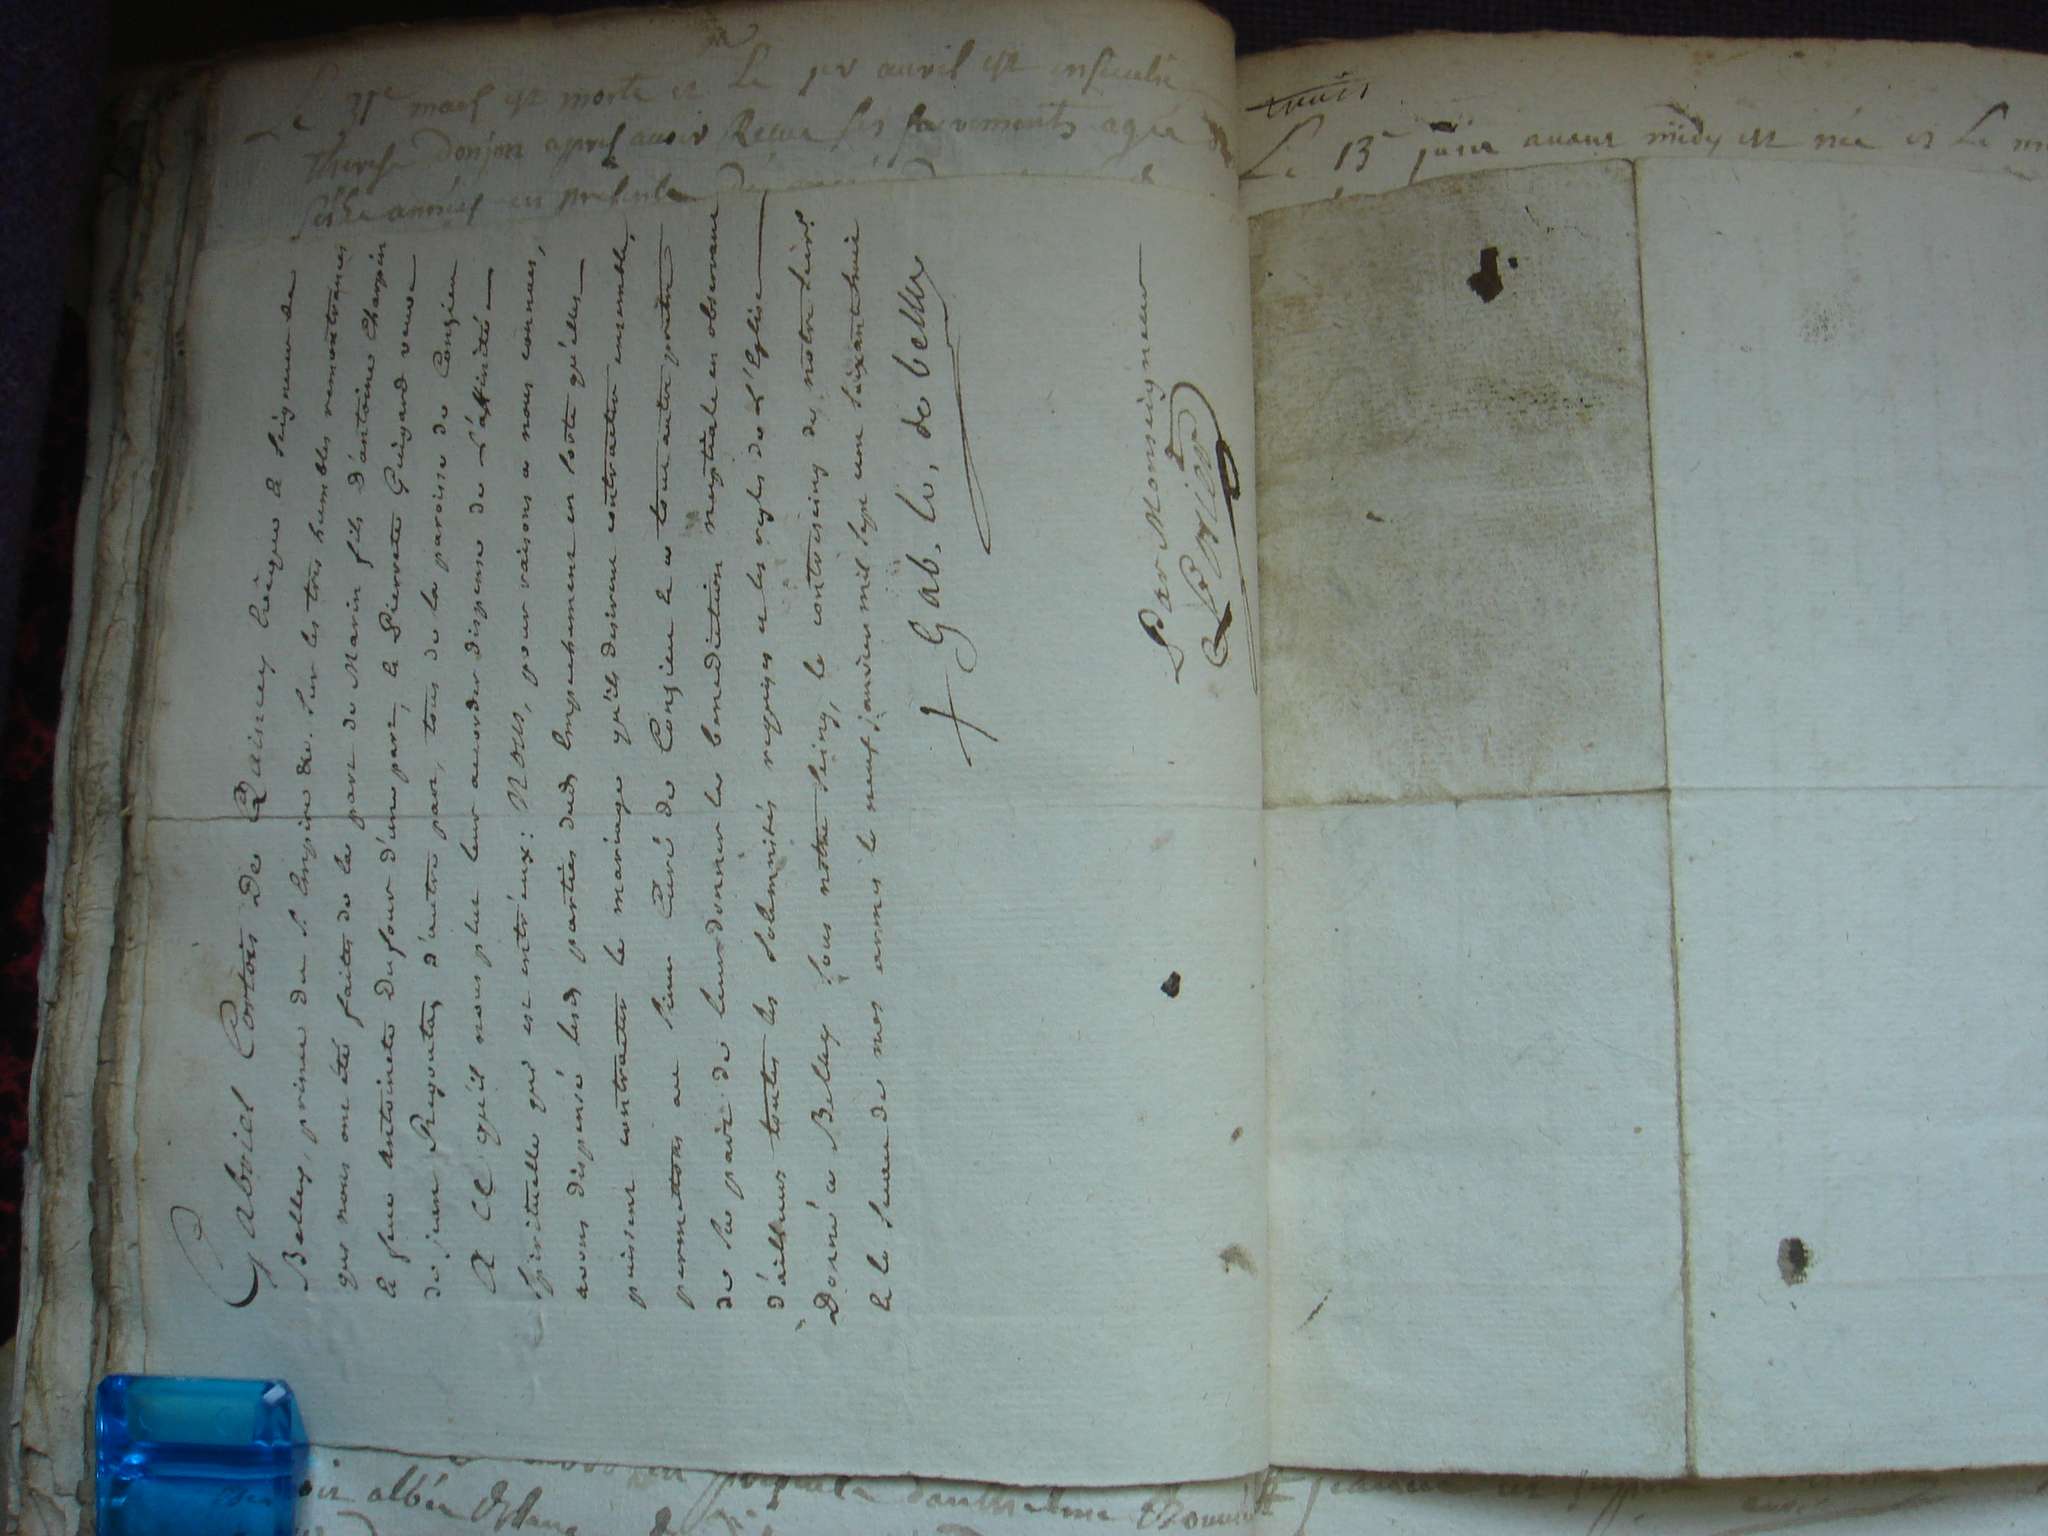 31e mars est morte et le 1er auril est enseuelie
Therese donjon apres auoir Receu les sacrements agée
seize années en presence
Gabriel Cortois De Quincey Evêque & Seigneur de
Belley, prince du St Empire &c. Sur les très humbles remontrances
qui nous ont été faites de la part de Marin fils d'antoine Charpin
& feue antoinete Dufour d'une part, & Pierrete Guigard veuve
de jean Reguta, d'autre part, tous de la paroisse de Conzieu
A CE qu'il nous plut leur accorder dispense de L'affinité
Spirituelle qui est entr'eux: NOUS, pour raisons a nous connues,
avons dispensé lesd. parties dud. Empechement en sorte qu'elles
puissent contracter le mariage qu'ils desirent contracter ensemble,
permettons au sieur Curé de Conzieu & a tout autre prêtre
de sa part de leur donner la benediction nuptiale en observant
d'ailleurs toutes les solemnités requises & les regles de L'Eglise
Donné a Belley sous notre seing, le contreseing de notre Secr.
& le sceau de nos armes le neuf janvier mil sept cent soixante
† Gab. Ev. de belley
Par Monseigneur
Le 13e juin auant midy est née et le